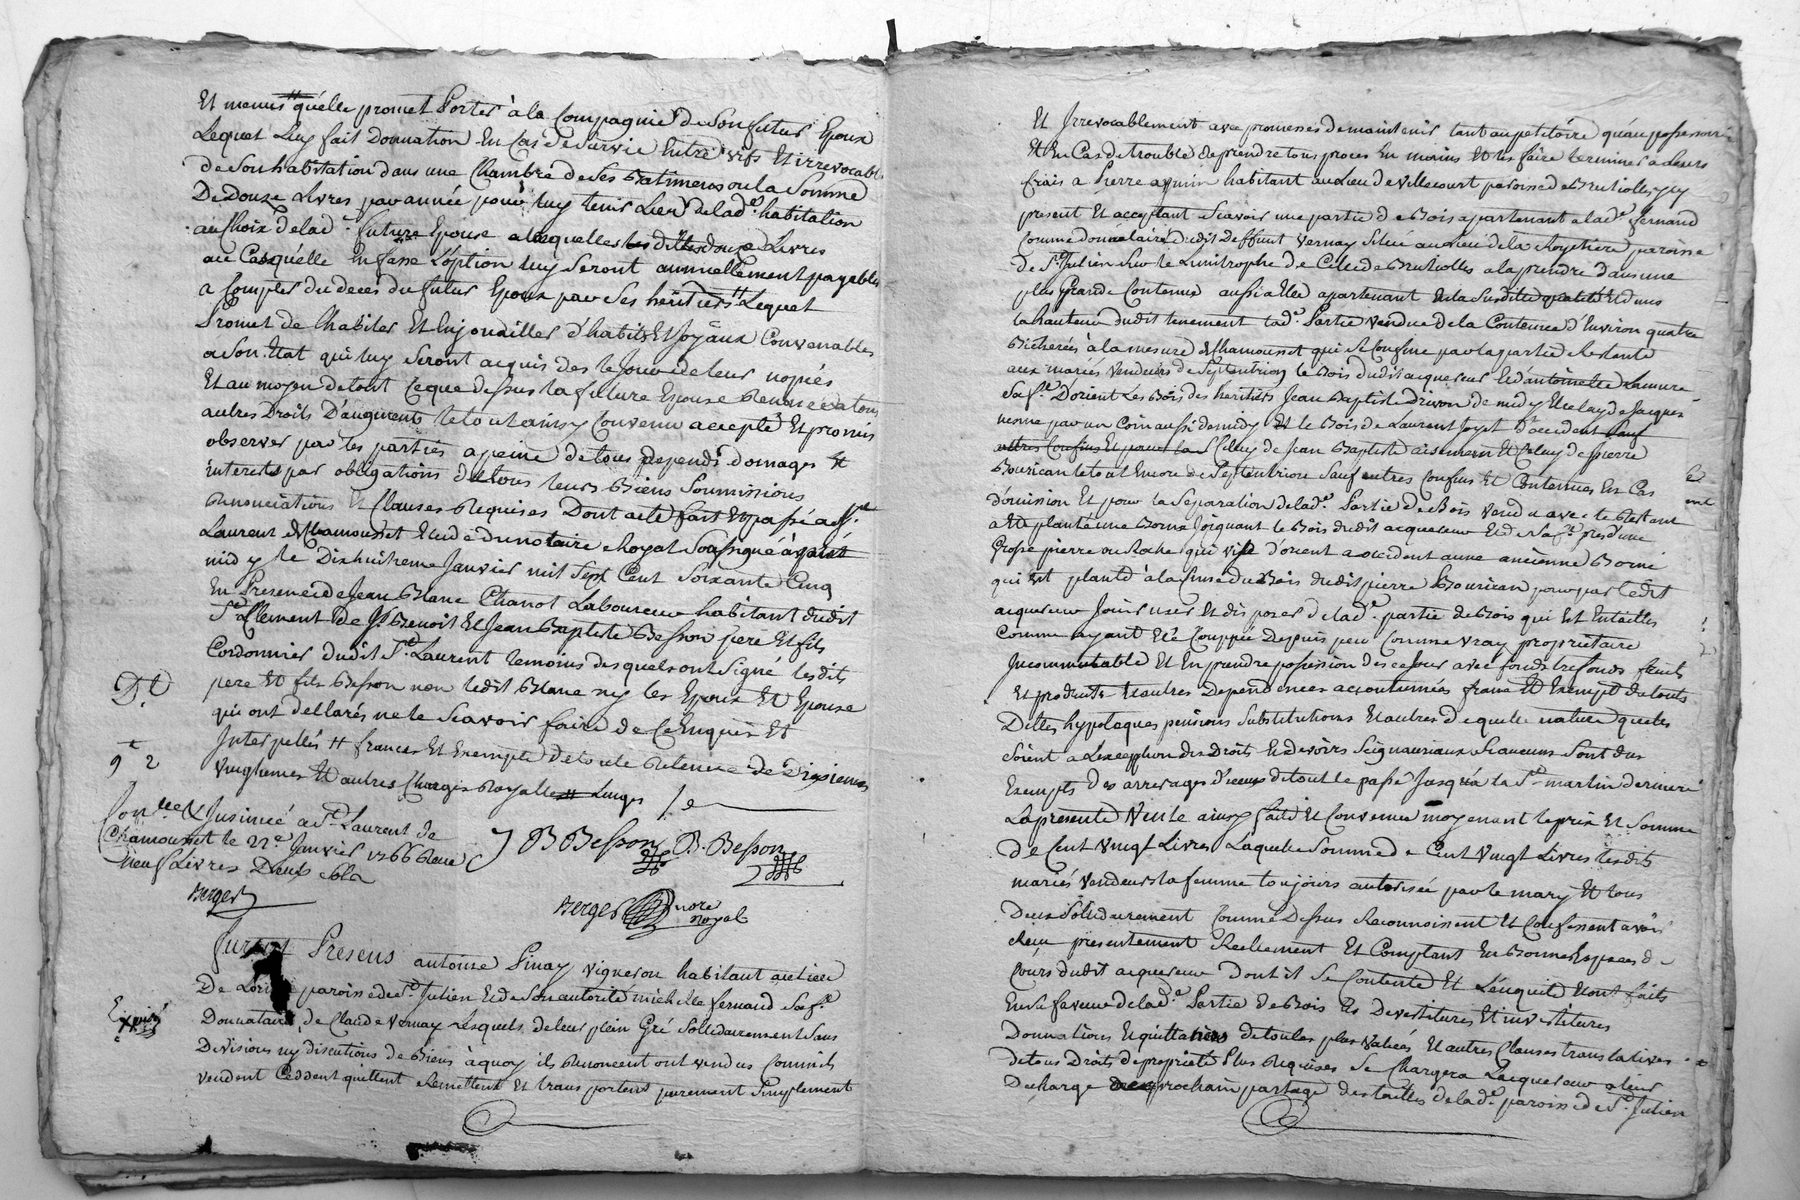 Et menus qu'elle promet Porter à la Compagnie de Son futur Epoux
Lequel Luy fait Donnation En Cas de Survie Entre vifs Et irrevocable
de Son habitation dans une Chambre de Ses Batimens ou la Somme
De Douze Livres par année pour luy tenir Lieu de lade. habitation
au Choix de lad.e future Epouse a laquelle les dittes douze Livres
au Cas qu'élle En fasse L'óption luy Seront annuellement payables
a Compter du deces du futur Epoux par Ses héritiers Lequel
Promet de Lhabiller Et Enjouailler d'habits Et Joyaux Convenables
a Son Etat qui luy Seront acquis des le Jour de leur nopces
Et au moyen de tout Ce que dessus la future Epouse Renonce a tous
autres Droits D'augment le tout ainsy Convenu accepté Et promis
observer par les parties a peine de tous depends domages Et
interets par obligations de tous leurs Biens Soumissions
Renonciations Et Clauses Requises Dont acte fait Et passé a St.
Laurent de Chamousset Etude du notaire Royal Soussigné avant
midy le Dixhuitieme Janvier mil Sept Cent Soixante Cinq
En Presence de Jean Blanc Chanot Laboureur habitant dudit
St. Clement de St. Benoit Et Jean Baptiste Besson pere Et fils
Cordonnier dudit St. Laurent temoins desquels ont Signé lesdits
pere Et fils Besson non ledit Blanc ny les Epoux Et Epouse
qui ont dellarés ne le Scavoir faire de Ce Enquis Et
Interpellés # francs Et Exempte De toute Retenue de Dixiemes
Vingtiemes Et autres Charges Royalles
Conllé & Insinué a St. Laurent de
Chamousset le 22e Janvier 1766 Reçu
neuf Livres Deux
Berger
J B Besson B. Besson
Berger nore
royal
Furent Presens antoine Pinay vigneron habitant au lieu
De paroisse de St. Julien Et de Son autorité michelle fernand Sa fe.
Donnataire de Claude Vernay Lesquels de leur plein Gré Sollidairement Sans
Divisions ny discutions de Biens à quoy ils Renoncent ont vendus Commils
vendent Cedent quittent Remettent Et transportent purement Simplement
Et Irrevocablement avec promesses de maintenir tant au petitoire qu'au possessoire
Et En Cas de trouble de prendre tous proces En mains Et les faire terminer a leurs
frais a Pierre habitant au Lieu de Villecourt paroisse de Brulliolles Icy
present Et acceptant Scavoir une partie de Bois appartenant a lade. fernand
Comme donnataire dudit deffunt Vernay Situé au Lieu de la Royetiere paroisse
De St. Julien Sur le Limitrophe de Celle de Brulliolles a la prendre dans une
plus Grande Contenue aussi a Elle apartenant En la Susditte qualité Et dans
la hauteur dudit tenement lade. Partie vendue de la Contenue d'Environ quatre
Bicherées à la mesure de Chamousset qui Se Confine par la partie Restante
aux mariés Vendeurs de Septentrion le Bois dudit acquereur Et d'antoinette Lamure
Sa fe. D'orient Les Bois des heritiers Jean Baptiste Drivon de midy Et Celuy de Jacques
par un Coin aussi de midy Et le Bois de Laurent D'occident
Celluy de Jean Baptiste Et Celuy de pierre
Bourican le tout Encore de Septentrion Sauf autres Confins Et Contenues En Cas
d'omission Et pour la Séparation de lade. Partie de Bois vendue avec le Restant
a Eté planté une Borne Joignant le Bois dudit acquereur Et de Sa fe. pres d'une
Grosse pierre ou Roche qui vise d'orient a occident a une ancienne Borne
qui Est planté à la Cime du Bois dudit pierre Bourican pour par ledit
acquereur Jouir user Et disposer de lade. partie de Bois qui Est En taillis
Comme ayant Eté Couppée Depuis peu Comme vray proprietaire
Incommutable Et En prendre possession des ce Jour avec fonds tresfonds fruits
Et produits Et autres Dependences accoutumées franc Et Exempt de touts
Dettes hypotaques pensions Substitutions Et autres de quelle nature quelles
Soient a L'exception des Droits Et devoirs Seigneuriaux Si aucuns Sont dus
Exempts des arrerages d'iceux de tout le passé Jusqu'a la St. martin derniere
La presente Vente ainsy faite Et Convenue moyenant le prix Et Somme
De Cent Vingt Livres Laquelle Somme de Cent Vingt Livres lesdits
mariés vendeurs la femme toujours autorisée par le mary Et tous
Deux Sollidairement Comme Dessus Reconnoissent Et Confessent avoir
Reçu presentement Reellement Et Comptant En Bonnes Especes de
Cours dudit acquereur Dont il Se Contente Et L'enquitte Et ont faits
En Sa faveur de lade. Partie de Bois les Devestitures Et investitures
Donnations Et quittances de toutes plus values Et autres Clauses translatives
de tous Droits de propriété Plus Requises Se Chargera L'acquereur a leur
Decharge prochain partage des tailles de lade. paroisse de St. Julien